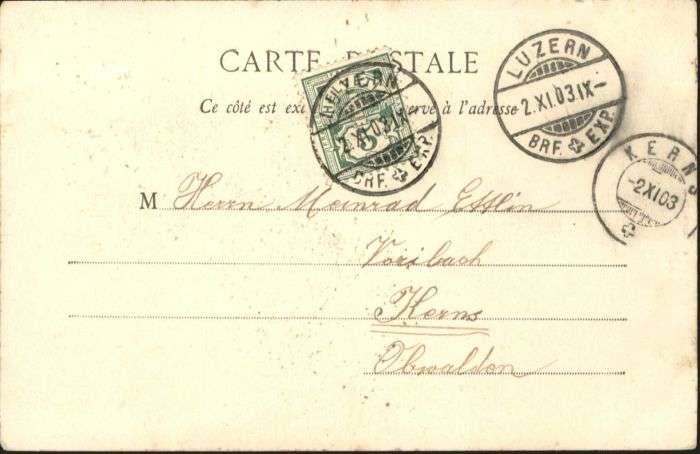 CARTE POSTALE
Ce côté est exclusivement réservé à l'adresse
HELV
LUZERN
2.XI.03 IX-
BRF. EXP.
5
LUZERN
2.XI.03 IX-
BRF. EXP.
KERN
-2XI03
M Herrn Meinrad Ettlin
Voribach
Kerns
Obwalden